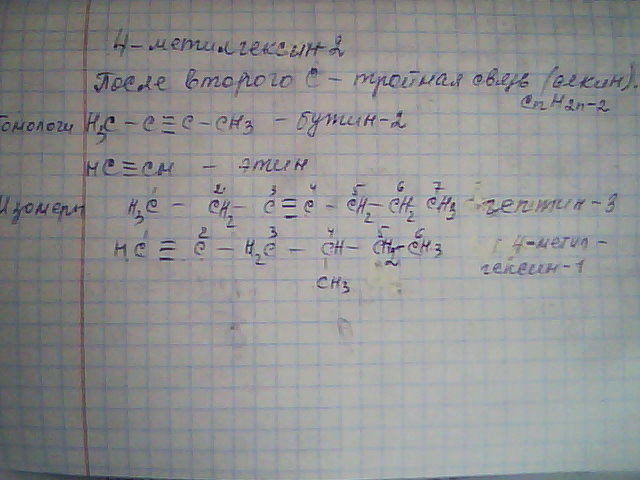 4-метилгексин-2
После второго С - тройная связь (алкин).
CnH2n-2
Гомологи H3C - C ≡ C - CH3 - бутин-2
HC ≡ CH - этин
Изомеры H3C - CH2 - C ≡ C - CH2 - CH2 CH3 - гептин-3
1 2 3 4 5 6 7
HC ≡ C - H2C - CH - CH2 - CH3 4-метил-
1 2 3 4 5 6
CH3
гексин-1